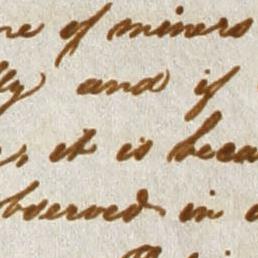 ne of miners
lly and if
s, it is beca
bserved in a